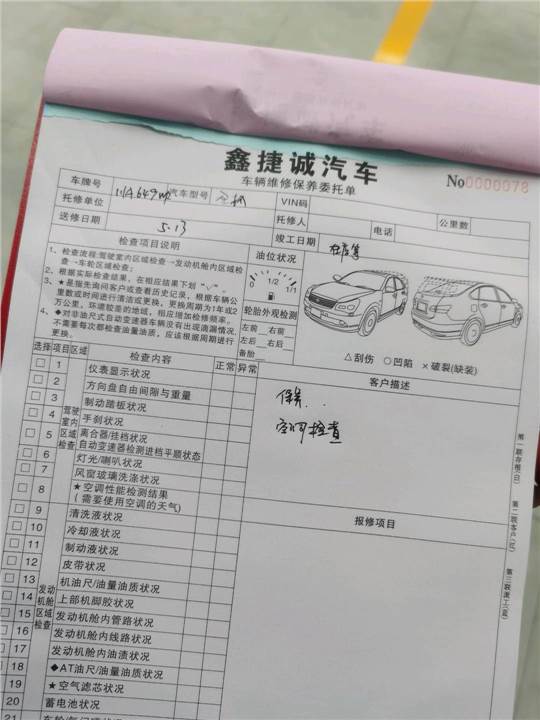 鑫捷诚汽车
车辆维修保养委托单
No0000078
车牌号 汽车型号 VIN码
托修单位 托修人 电话 公里数
送修日期 5.13 竣工日期 在店等
检查项目说明
1、检查流程:驾驶室内区域检查→发动机舱内区域检
查→车轮区域检查;
2、根据实际检查结果,在相应结果下划“√”。
3、★是指先询问客户或查看历史记录,根据车辆公
里数或时间进行清洁或更换,更换周期为1年或2
万公里,环境较差的地域,相应增加检修频率。
4、◆对非油尺式自动变速器车辆没有出现滴漏情况,
不需要每次都检查油量油质,应该根据周期进行
更换。
油位状况
1/2
1/1
轮胎外观检测
左前 右前
左后 右后
备胎
△刮伤 ○凹陷 ×破裂(缺装)
选择 项目 区域 检查内容 正常 异常
客户描述
保养
空调检查
报修项目
驾驶室内区域检查
1 仪表显示状况
2 方向盘自由间隙与重量
3 制动踏板状况
4 手刹状况
5 离合器/挂档状况
自动变速器检测进档平顺状态
6 灯光/喇叭状况
7 风窗玻璃洗涤状况
8 ★空调性能检测结果
(需要使用空调的天气)
发动机舱区域检查
9 清洗液状况
10 冷却液状况
11 制动液状况
12 皮带状况
13 机油尺/油量油质状况
14 上部机脚胶状况
15 发动机舱内管路状况
16 发动机舱内线路状况
17 发动机舱内油渍状况
18 ◆AT油尺/油量油质状况
19 ★空气滤芯状况
20 蓄电池状况
21
第一联存根(白) 第二联客户(红) 第三联派工(蓝)